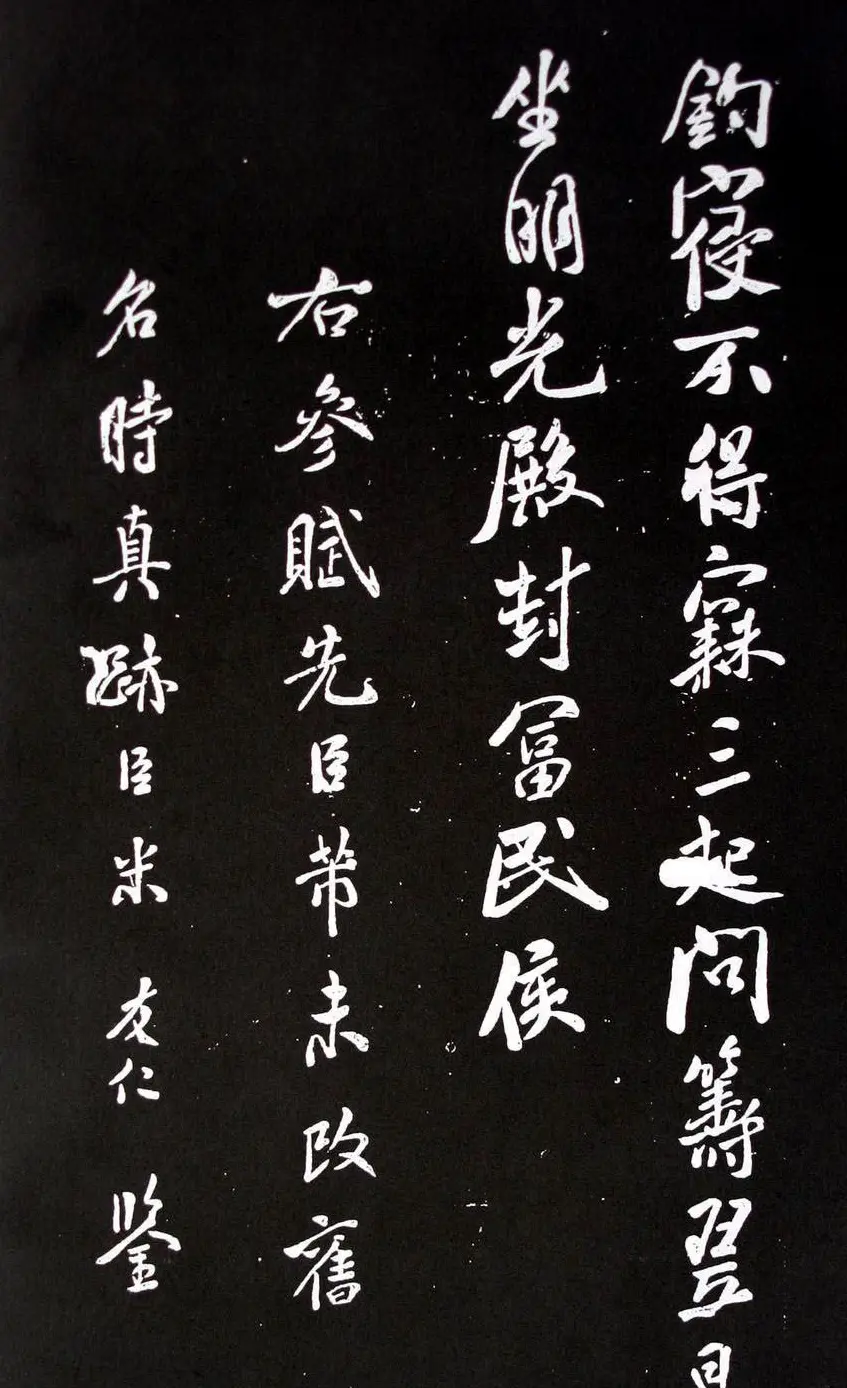 鈞寢不得寐三起問籌翌日
坐明光殿封冨民侯
右參賦先臣芾未改舊
名時真跡臣米友仁鑒